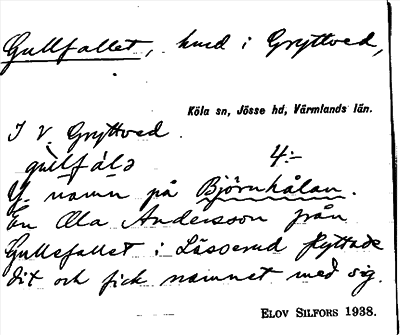 Gullfallet, hmd i Gryttved,
Köla sn, Jösse hd, Värmlands län.
I V. Gryttved.
gul̀lfál∂ 4:-
Y. namn på Björnhålan.
En Ola Andersson från
Gullsfallet i Lässerud flyttade
dit och fick namnet med sig.
ELOV SILFORS 1938.